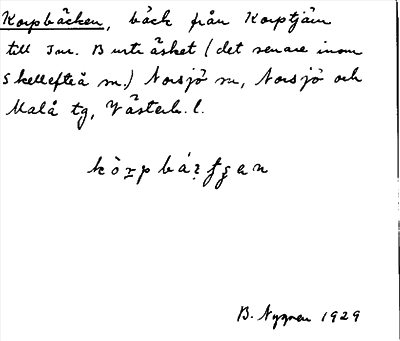 Korpbäcken, bäck från Korptjärn
till Inr. Burträsket (det senare inom
Skellefteå sn.) Norsjö sn, Norsjö och
Malå tg, Västerb. l.
B. Nygren 1929